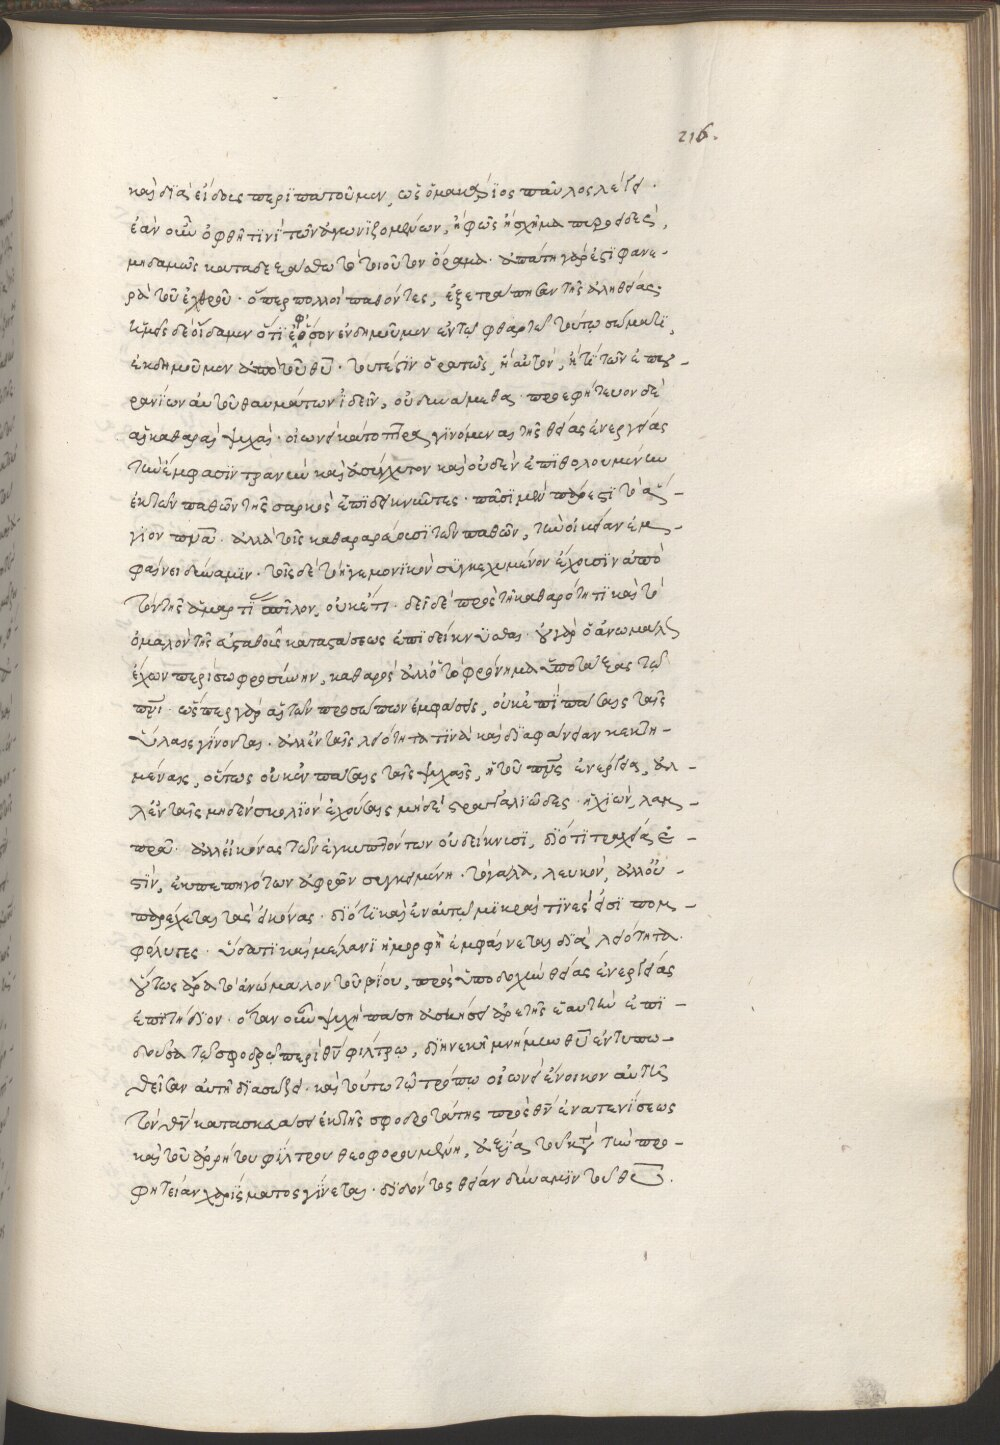 216.
καὶ διὰ εἴδους περιπατοῦμεν, ὡς ὁ μακάριος παῦλος λέγει.
ἐὰν οὖν ὀφθῆ τινὶ τῶν ἀγωνιζομένων, ἢ φῶς ἢ σχῆμα πυροειδές,
μηδαμῶς καταδεξάσθω τὸ τοιοῦτον ὅραμα. ἀπάτη γάρ ἐστι φανε-
ρὰ τοῦ ἐχθροῦ. ὅπερ πολλοὶ παθόντες, ἐξετράπησαν τῆς ἀληθείας.
ἡμεῖς δὲ οἴδαμεν ὅτι ἐφ ὅσον ἐνδημοῦμεν ἐν τῷ φθαρτῷ τούτῳ σώματι,
ἐκδημοῦμεν ἀπὸ τοῦ θυ. τουτέστιν ὁρατῶς, ἢ αὐτόν, ἢ τὶ τῶν ἐπου-
ρανίων αὐτοῦ θαυμάτων ἰδεῖν, οὐ δυνάμεθα. προεφήτευον δὲ
αἱ καθαραὶ ψυχαί. οἱωνεὶ κάτοπτρα γινόμεναι τῆς θείας ἐνεργείας
τὴν ἔμφασιν τρανὴν καὶ ἀσύγχυτον καὶ οὐδὲν ἐπιθολουμένην
ἐκ τῶν παθῶν τῆς σαρκὸς ἐπιδεικνῦντες. πᾶσι μὲν πάρεστι τὸ ἅ-
γιον πνα. ἀλλὰ τοῖς καθαραρεύουσι τῶν παθῶν, τὴν οἰκείαν ἐμ-
φαίνει δύναμιν. τοῖς δὲ τὸ ἡγεμονικὸν συγκεχυμένον ἔχουσιν ἀπὸ
τῶν τῆς ἁμαρτί σπίλον, οὐκέτι. δεῖ δὲ πρὸς τῆ καθαρότητι καὶ τὸ
ὁμαλὸν τῆς εὐσταθοῦς καταστάσεως ἐπιδείκνυσθαι. οὐ γὰρ ὁ ἀνωμαλ
ἔχων περὶ σωφροσύνην, καθαρός ἀλλ ὁ τὸ φρόνημα ὑποτάξας τῷ
πνι. ὥσπερ γὰρ αἱ τῶν προσώπων ἐμφάσεις, οὐκ ἐπὶ πάσαις ταῖς
ὕλαις γίνονται. ἀλλ ἐν ταῖς λειότητά τινα καὶ διαφάνειαν κεκτη-
μέναις, οὕτως οὐκ ἐν πάσαις ταῖς ψυχαῖς, ἡ τοῦ πνς ἐνέργεια, ἀλ-
λ ἐν ταῖς μηδὲν σκολιὸν ἐχούσαις μηδὲ στραγγαλιῶδες. ἡ χιὼν, λαμ-
πρά. ἀλλ εἰκόνας τῶν ἐγκυπτόντων οὐ δείκνυσι, διότι τραχεῖά ἐ-
στιν, ἐκ πεπηγότων ἀφρῶν συγκειμένη. τὸ γάλα, λευκόν, ἀλλ οὐ-
παρέχεται τὰς εἰκόνας. διότι καὶ ἐν αὐτῷ μικραί τινές εἰσι πομ-
φόλυγες. ὕδατι καὶ μέλανι ἡ μορφὴ ἐμφαίνεται διὰ λειότητα.
οὕτως ἄρα τὸ ἀνώμαλον τοῦ βίου, πρὸς ὑποδοχὴν θείας ἐνεργείας
ἐπιτήδειον. ὅταν οὖν ψυχὴ πάση ἀσκήσει ἀρετῆς ἑαυτὴν ἐπι-
δοῦσα τῷ σφοδρῷ περὶ θν φίλτρῳ, διηνεκῆ μνήμην θυ ἐντυπω-
θεῖσαν αὐτῆ διασώζει. καὶ τούτῳ τῷ τρόπῳ οἱωνεὶ ἔνοικον αὐτῆς
τὸν θν κατασκευάσει ἐκ τῆς σφοδροτάτης πρὸς θν ἐνατενίσεως
καὶ τοῦ ἀρρήτου φίλτρου θεοφορουμένη, ἀξία τοῦ κατὰ τὴν προ-
φητείαν χαρίσματος γίνεται. διδόντος θείαν δύναμιν τοῦ θυ.